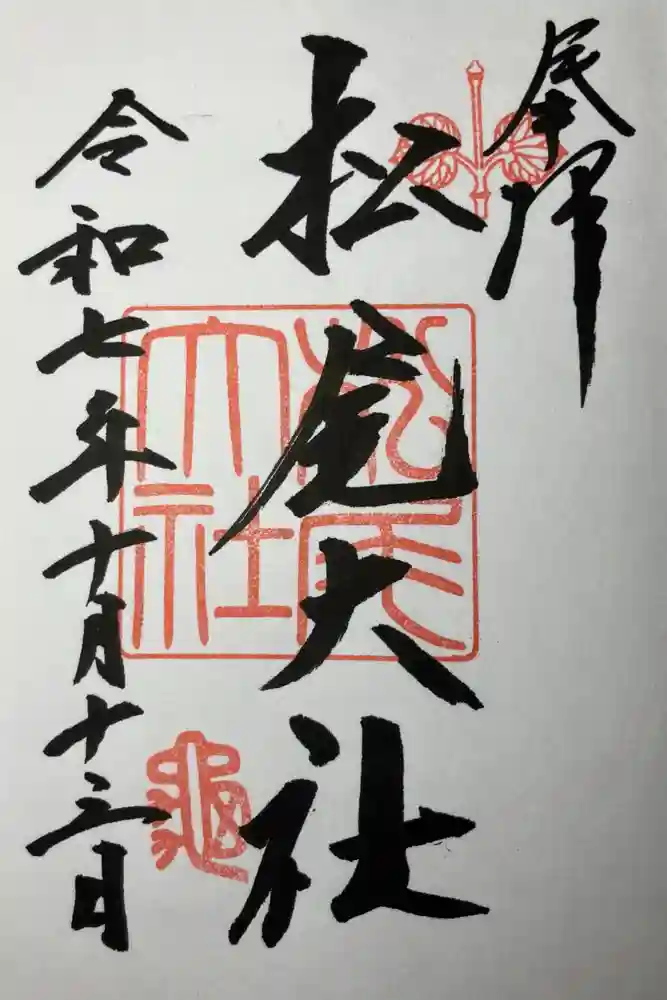 奉拝
松尾大社
松尾大社
令和七年十月十三日
亀